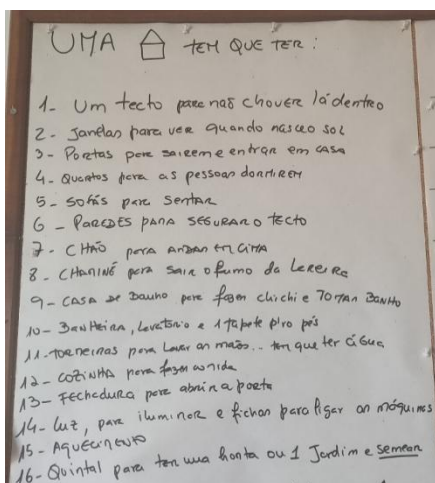 UMA TEM QUE TER:
1- Um tecto para não chover lá dentro
2- Janelas para ver quando nasce o sol
3- Portas para sairem e entrar em casa
4- Quartos para as pessoas dormirem
5- Sofás para sentar
6- Paredes para segurar o tecto
7- Chão para andar em cima
8- Chaminé para sair o fumo da lareira
9- Casa de banho para fazer chichi e tomar banho
10- Banheira, lavatório e 1 tapete p/ro pés
11- torneiras para lavar as mãos... tem que ter água
12- Cozinha para fazer comida
13- Fechadura para abrir a porta
14- Luz, para iluminar e fichas para ligar as máquinas
15- Aquecimento
16- Quintal para ter uma horta ou 1 Jardim e semear